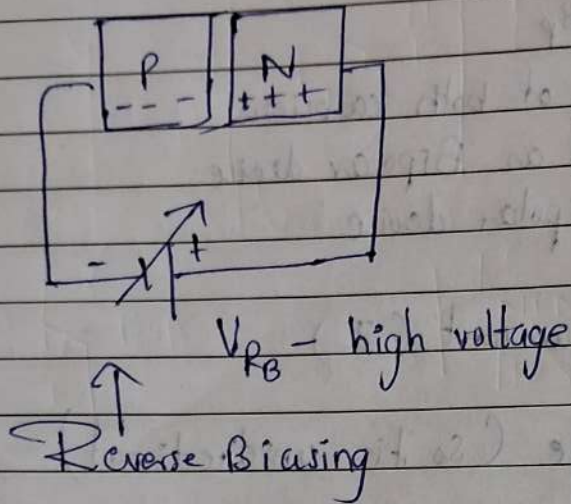 P N
- - - + + +
- +
V_RB - high voltage
↑
Reverse Biasing